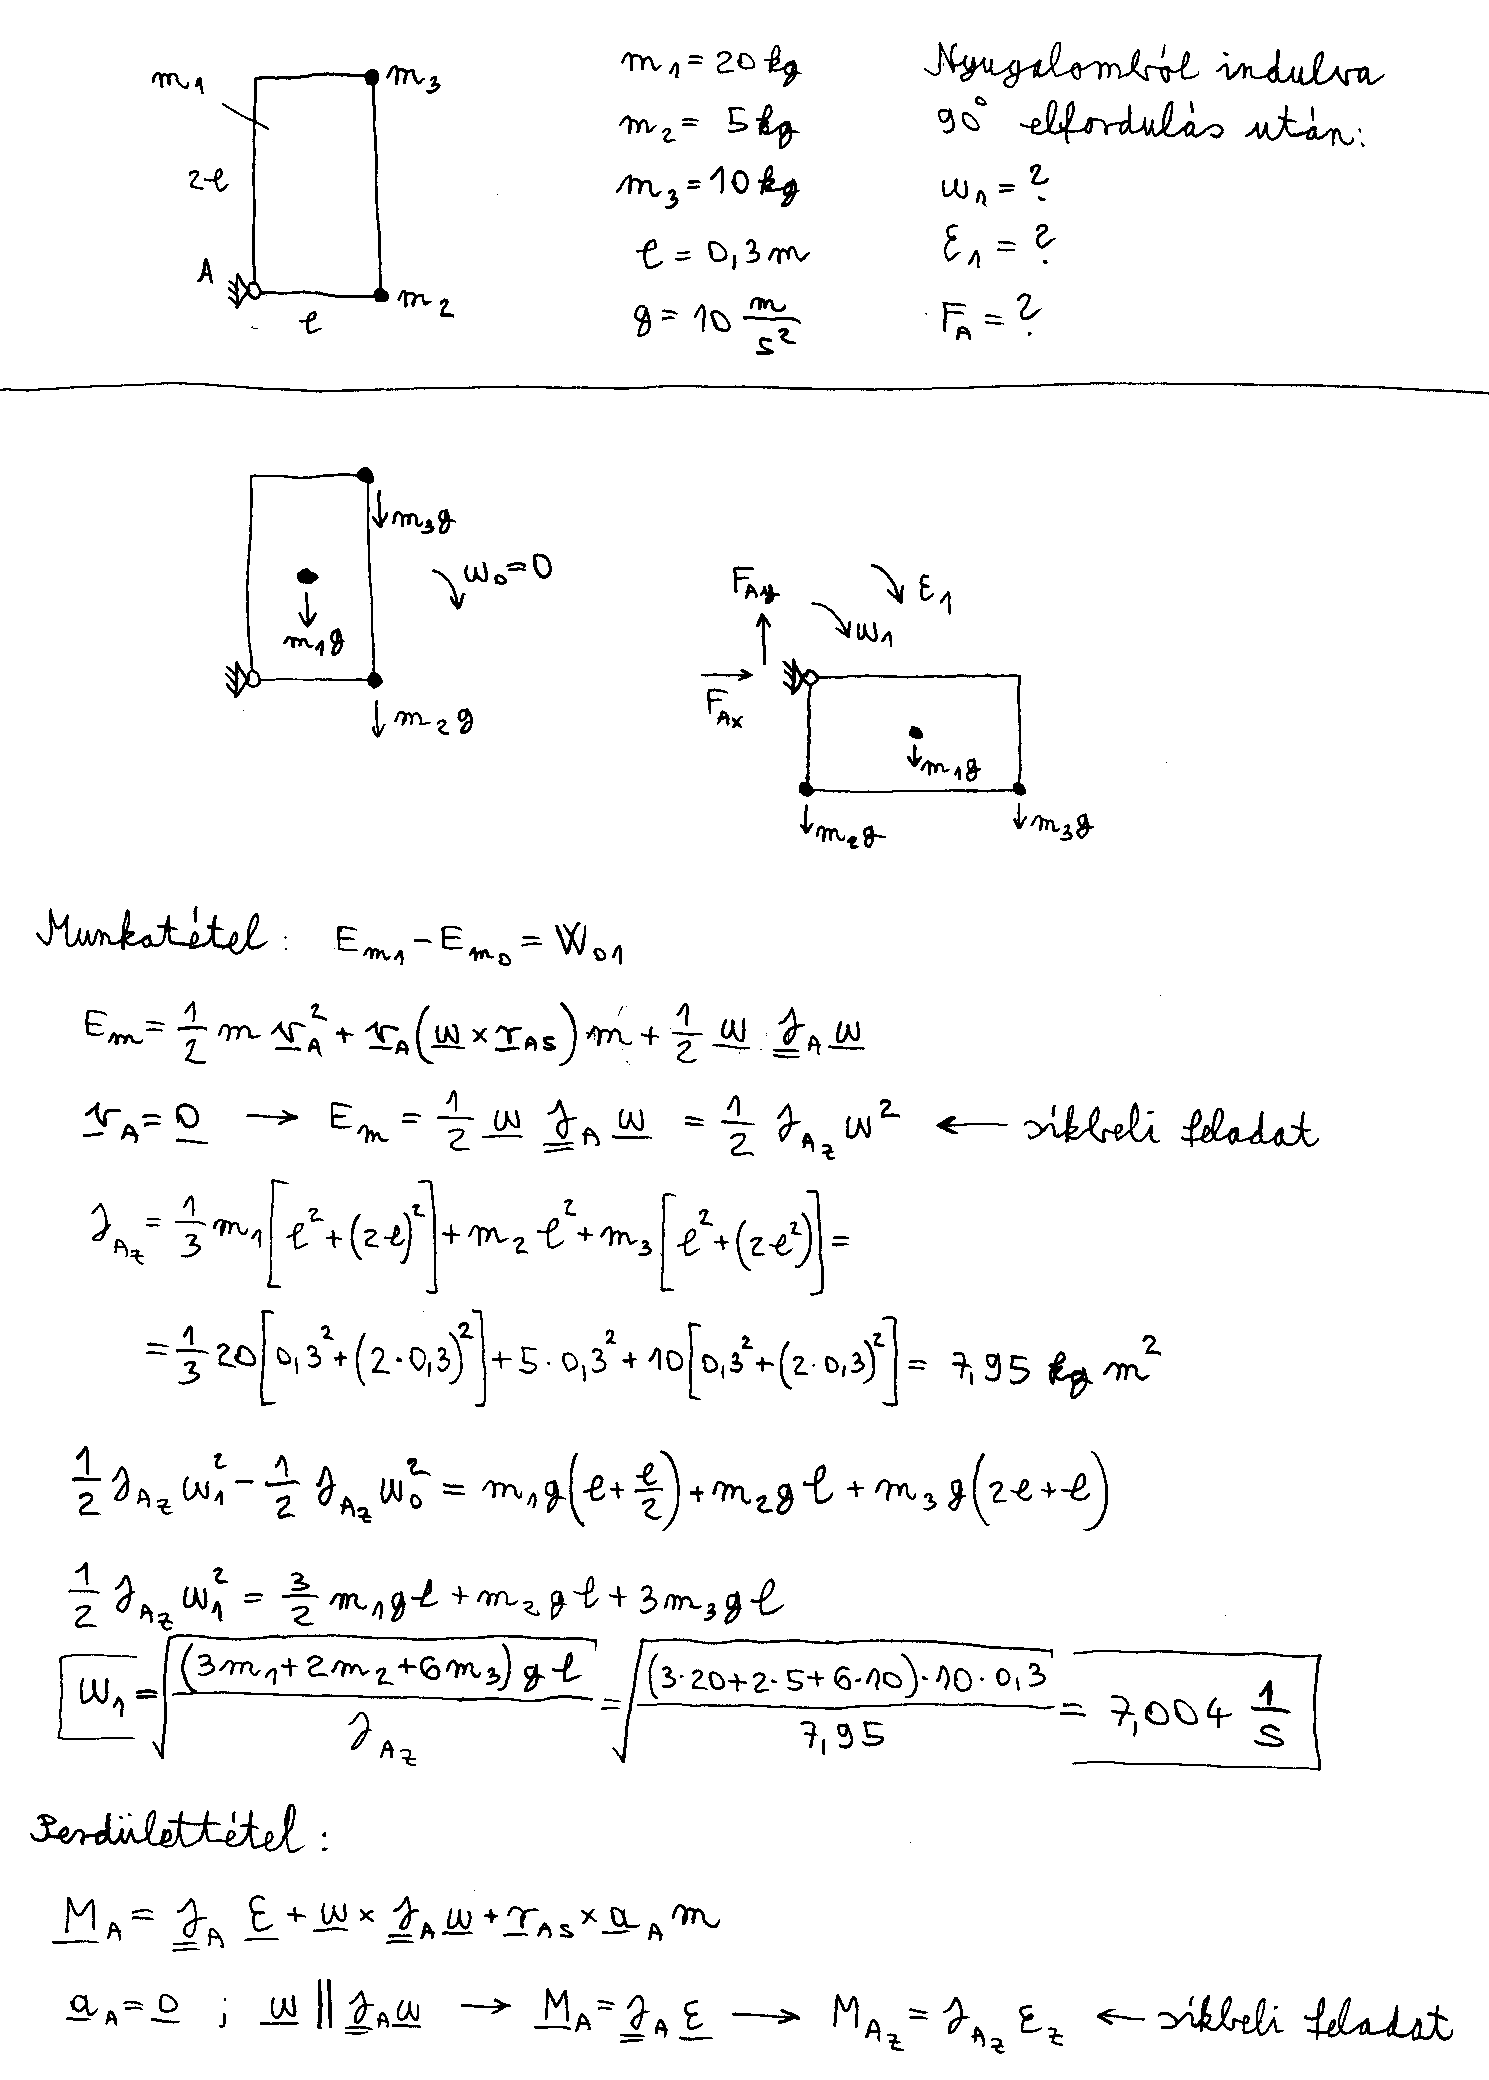 m₁ m₃ m₁ = 20 kg Nyugalomból indulva
m₂ = 5 kg 90° elfordulás után:
2l m₃ = 10 kg ω₁ = ?
A l = 0,3 m ε₁ = ?
l m₂ g = 10 m/s² F_A = ?
m₃g
ω₀=0
m₁g
m₂g
F_Ay ω₁ ε₁
F_Ax
m₁g
m₂g m₃g
Munkatétel: E_m₁ - E_m₀ = W₀₁
E_m = 1/2 m v_A² + v_A (ω × r_AS) m + 1/2 ω J_A ω
v_A = 0 → E_m = 1/2 ω J_A ω = 1/2 J_Az ω² ← síkbeli feladat
J_Az = 1/3 m₁[l² + (2l)²] + m₂ l² + m₃[l² + (2l²)] =
= 1/3 20[0,3² + (2·0,3)²] + 5·0,3² + 10[0,3² + (2·0,3)²] = 7,95 kg m²
1/2 J_Az ω₁² - 1/2 J_Az ω₀² = m₁g(l + l/2) + m₂g l + m₃g(2l + l)
1/2 J_Az ω₁² = 3/2 m₁gl + m₂gl + 3m₃gl
ω₁ = √((3m₁+2m₂+6m₃) g l / J_Az) = √((3·20+2·5+6·10)·10·0,3 / 7,95) = 7,004 1/s
Perdülettétel:
M_A = J_A ε + ω × J_A ω + r_AS × a_A m
a_A = 0 ; ω ∥ J_A ω → M_A = J_A ε → M_Az = J_Az ε_z ← síkbeli feladat